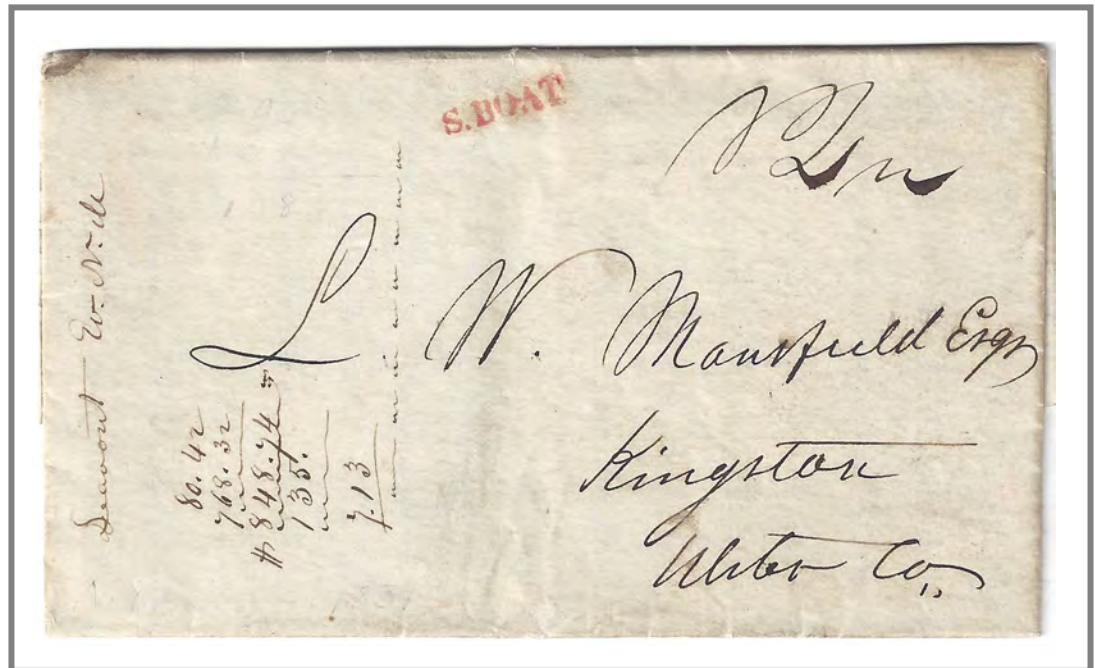 S.BOAT
L W. Mansfield Esqr
Kingston
Ulster Co,
80.42
768.32
$848.74
135.
7.13